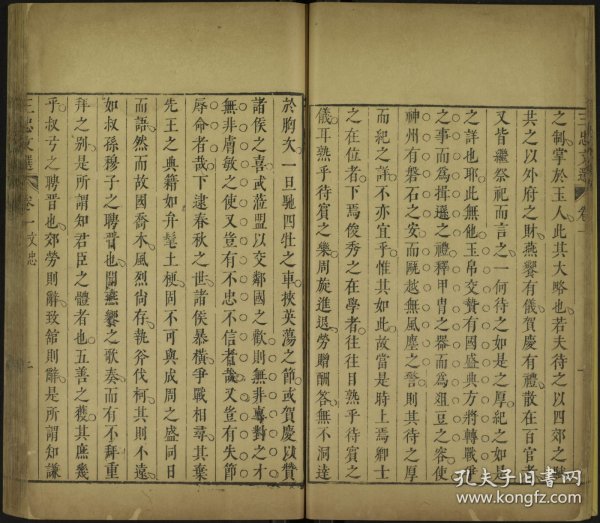 三忠文選 卷一
之制掌於玉人此其大略也若夫待之以四郊之
共之以外府之財燕饗有儀賀慶有體散在百官者
又皆繼祭祀而言之一何待之如是之厚紀之如是
之詳也耶此無他玉帛交贊有國盛典方將轉戰爭
之事而爲揖遜之禮釋甲冑之器而爲俎豆之容使
神州有磐石之安而甌越無風塵之警則其待之厚
而紀之詳不亦宜乎惟其如此故當是時上焉卿士
之在位者下焉俊秀之在學者往往目熟乎待賓之
儀耳熟乎待賓之樂周旋進退勞贈酬答無不洞達
於胸次一旦馳四牡之車挾英蕩之節或賀慶以贊
諸侯之喜或涖盟以交鄰國之歡則無非專對之才
無非膚敏之使又豈有不忠不信者哉又豈有失節
辱命者哉下逮春秋之世諸侯暴橫爭戰相尋其棄
先王之典籍如弁髦土梗固不可與成周之盛同日
而語然而故國喬木風烈尚存執斧伐柯其則不遠
如叔孫穆子之聘晉也聞燕饗之歌奏而有不拜重
拜之別是所謂知君臣之體者也五善之獲其庶幾
乎叔弓之聘晉也郊勞則辭致館則辭是所謂知謙
三忠文選 卷一 文忠
孔夫子旧書网
www.kongfz.com